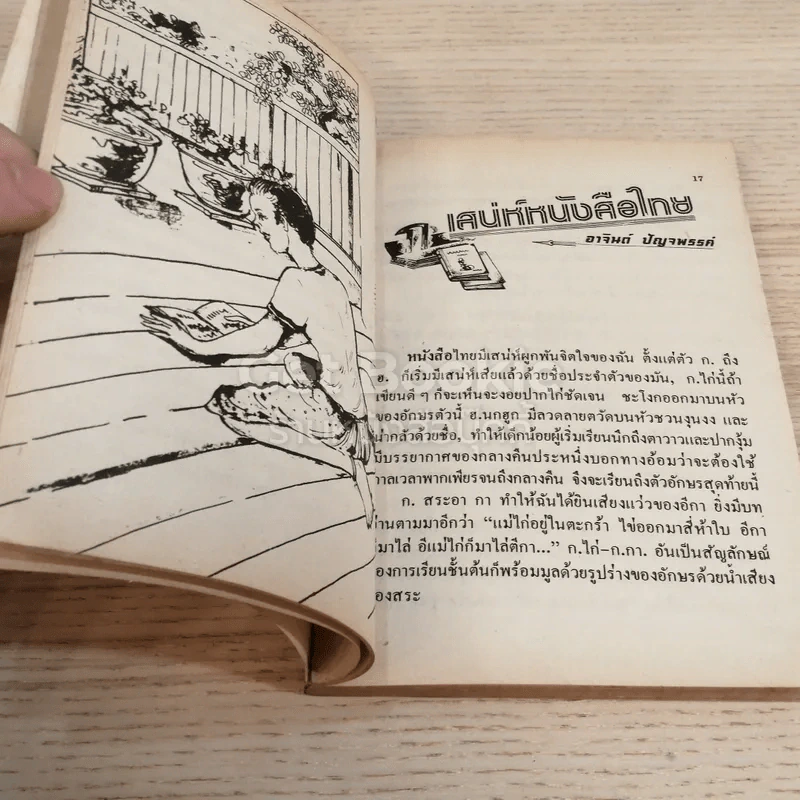 17
เสน่ห์หนังสือไทย
อาจินต์ ปัญจพรรค์
หนังสือไทยมีเสน่ห์ผูกพันจิตใจของฉัน ตั้งแต่ตัว ก. ถึง
ฮ. ก็เริ่มมีเสน่ห์เสียแล้วด้วยชื่อประจำตัวของมัน, ก.ไก่นี้ถ้า
เขียนดี ๆ ก็จะเห็นจะงอยปากไก่ชัดเจน ชะโงกออกมาบนหัว
ของอักษรตัวนี้ ฮ.นกฮูก มีลวดลายตวัดบนหัวชวนงุนงง และ
น่ากลัวด้วยชื่อ, ทำให้เด็กน้อยผู้เริ่มเรียนนึกถึงตาวาวและปากงุ้ม
มีบรรยากาศของกลางคืนประหนึ่งบอกทางอ้อมว่าจะต้องใช้
กาลเวลาพากเพียรจนถึงกลางคืน จึงจะเรียนถึงตัวอักษรสุดท้ายนี้
ก. สระอา กา ทำให้ฉันได้ยินเสียงแว่วของอีกา ยิ่งมีบท
อ่านตามมาอีกว่า “แม่ไก่อยู่ในตะกร้า ไข่ออกมาสี่ห้าใบ อีกา
ก็มาไล่ อีแม่ไก่ก็มาไล่ตีกา...” ก.ไก่–ก.กา. อันเป็นสัญลักษณ์
ของการเรียนชั้นต้นก็พร้อมมูลด้วยรูปร่างของอักษรด้วยน้ำเสียง
ของสระ
Get Bookie